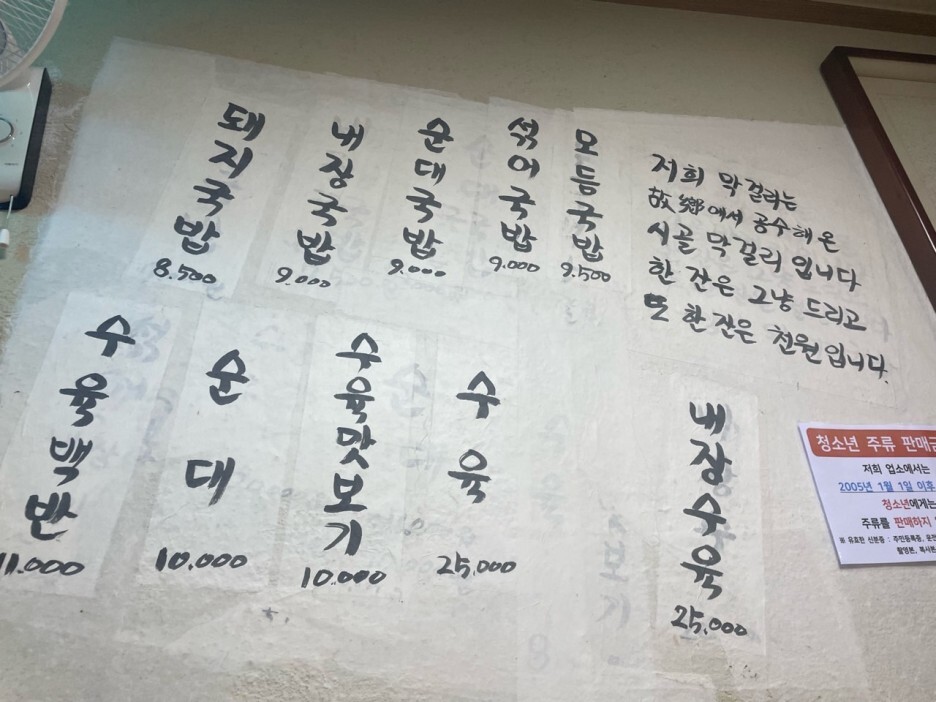 돼지국밥
8.500
내장국밥
9.000
순대국밥
9.000
섞어국밥
9.000
모듬국밥
9.500
저희 막걸리는
故鄕에서 공수해온
시골 막걸리 입니다
한 잔은 그냥 드리고
또 한잔은 천원입니다.
수육백반
11.000
순대
10.000
수육맛보기
10.000
수육
25,000
내장수육
25,000
청소년 주류 판매금
저희 업소에서는
2005년 1월 1일 이후
청소년에게는
주류를 판매하지
※ 유효한 신분증 : 주민등록증, 운전
촬영본, 복사본